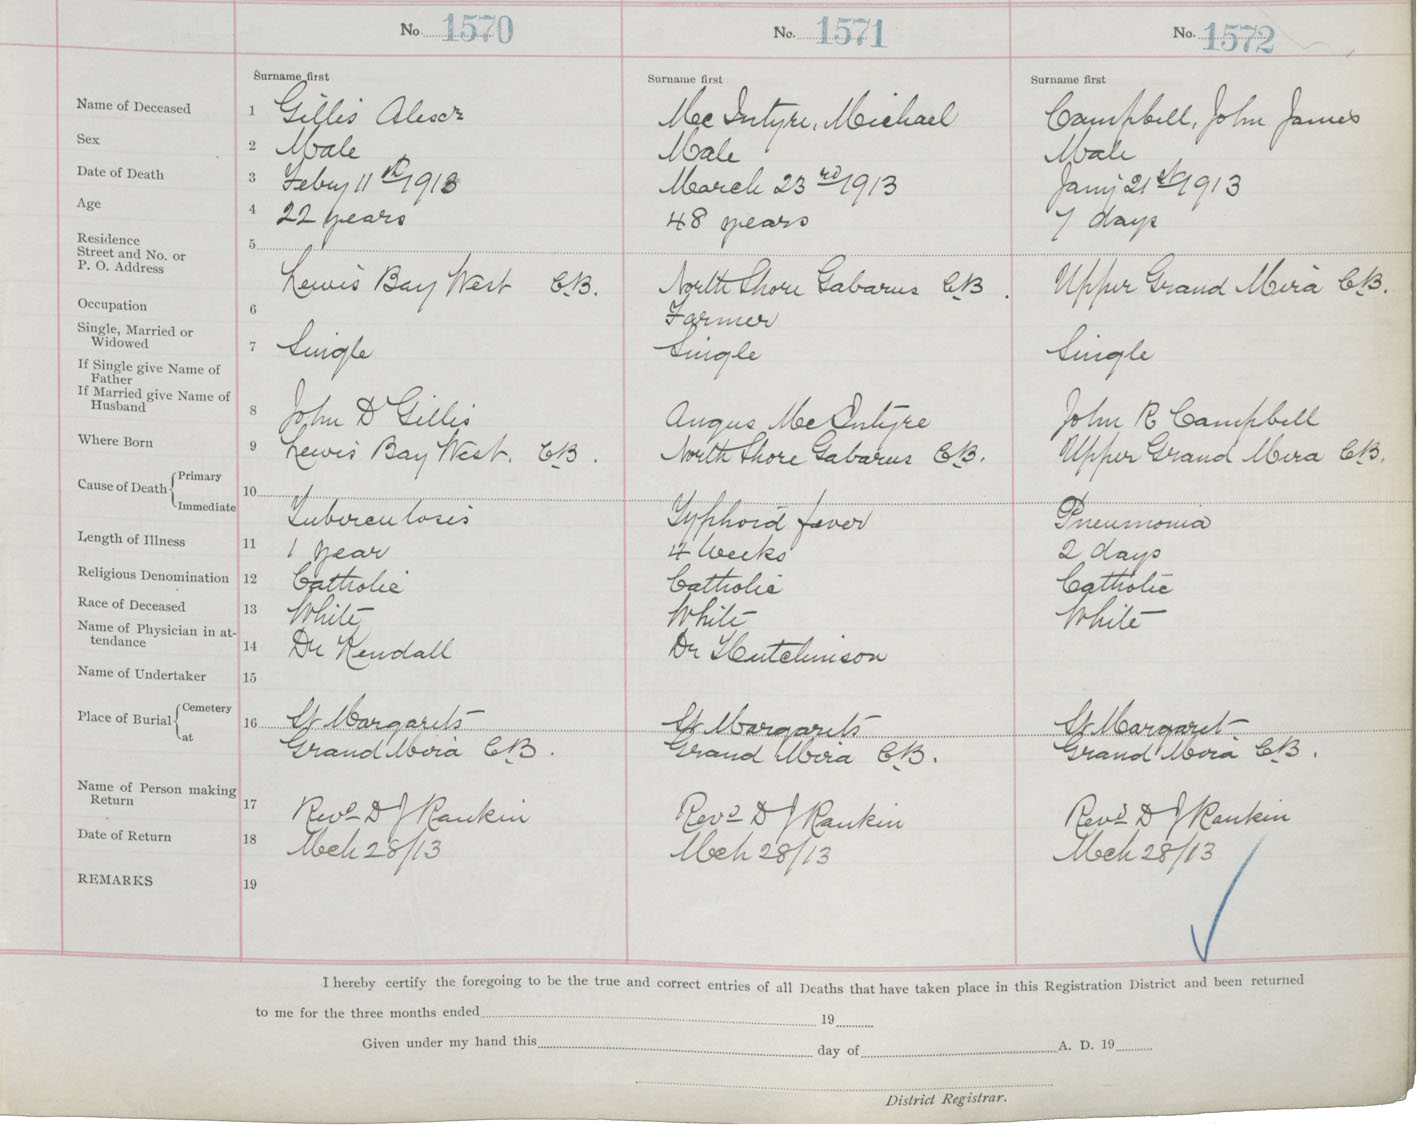 No. 1570 No. 1571 No. 1572
Surname first Surname first Surname first
Name of Deceased 1 Gillis Alexr Mc Intyre, Michael Campbell, John James
Sex 2 Male Male Male
Date of Death 3 Feby 11th 1913 March 23rd 1913 Jany 21st 1913
Age 4 22 years 48 years 7 days
Residence 5
Street and No. or
P. O. Address Lewis Bay West C.B. North Shore Gabarus C.B. Upper Grand Mira C.B.
Occupation 6 Farmer
Single, Married or
Widowed 7 Single Single Single
If Single give Name of
Father
If Married give Name of
Husband 8 John D Gillis Angus Mc Intyre John R Campbell
Where Born 9 Lewis Bay West. C.B. North Shore Gabarus C.B. Upper Grand Mira C.B.
Cause of Death { Primary
Immediate 10 Tuberculosis Typhoid fever Pneumonia
Length of Illness 11 1 year 4 weeks 2 days
Religious Denomination 12 Catholic Catholic Catholic
Race of Deceased 13 White White White
Name of Physician in at-
tendance 14 Dr Kendall Dr Hutchinson
Name of Undertaker 15
Place of Burial { Cemetery 16 St Margarets St Margarets St Margaret
at Grand Mira C.B. Grand Mira C.B. Grand Mira C.B.
Name of Person making
Return 17 Revd D J Rankin Revd D J Rankin Revd D J Rankin
Date of Return 18 Mch 28/13 Mch 28/13 Mch 28/13
REMARKS 19
I hereby certify the foregoing to be the true and correct entries of all Deaths that have taken place in this Registration District and been returned
to me for the three months ended 19
Given under my hand this day of A. D. 19
District Registrar.